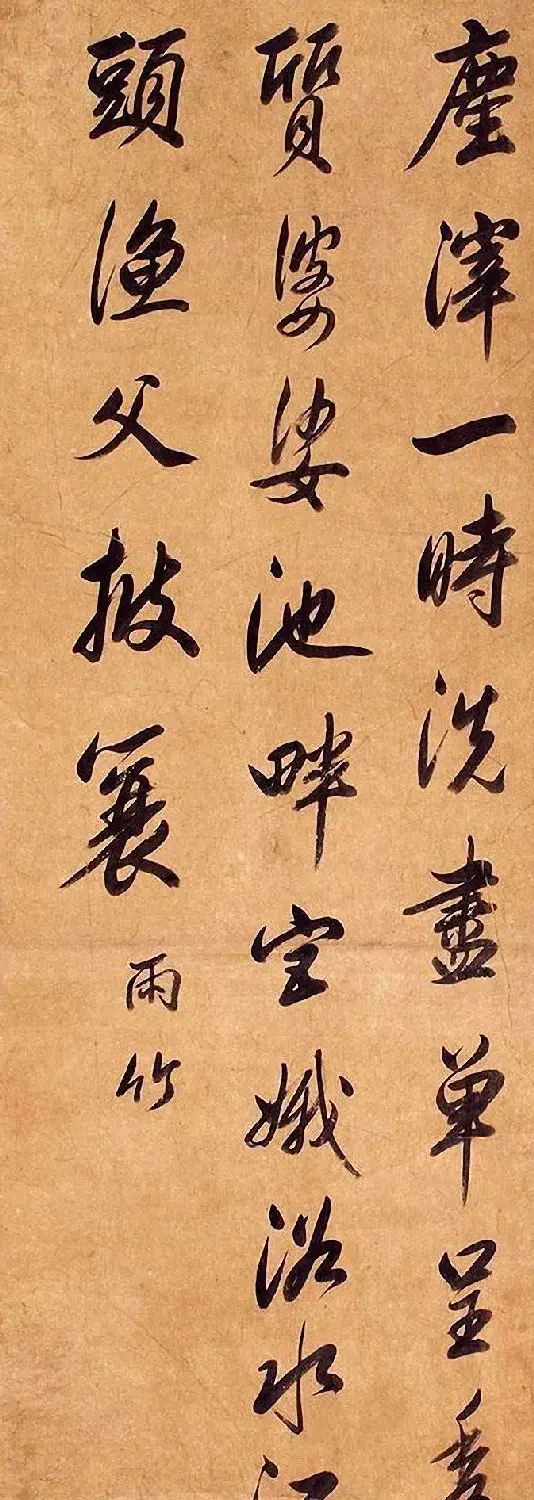 塵滓一時洗盡單呈秀
質婆娑池畔宮娥浴水江
頭漁父披蓑
雨竹